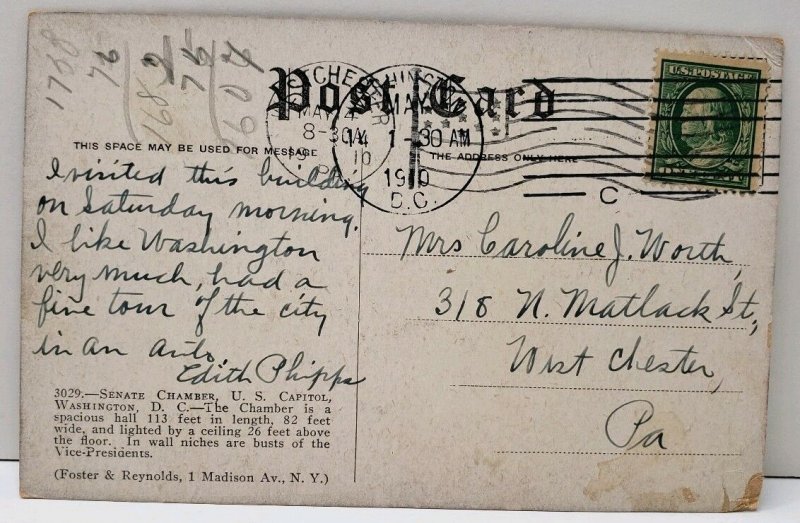 1758
76
2
168
75
604
Post Card
CHESTER
MAY
8-30A
19
WASHINGTON
MAY
1-30 AM
1910
D.C.
C
U.S. POSTAGE
THIS SPACE MAY BE USED FOR MESSAGE
THE ADDRESS ONLY HERE
I visited this building
on Saturday morning.
I like Washington
very much, had a
fine tour of the city
in an auto.
Edith Phipps
Mrs Caroline J. Worth,
318 N. Matlack St.,
West Chester,
Pa
3029.—SENATE CHAMBER, U. S. CAPITOL,
WASHINGTON, D. C.—The Chamber is a
spacious hall 113 feet in length, 82 feet
wide, and lighted by a ceiling 26 feet above
the floor. In wall niches are busts of the
Vice-Presidents.
(Foster & Reynolds, 1 Madison Av., N. Y.)